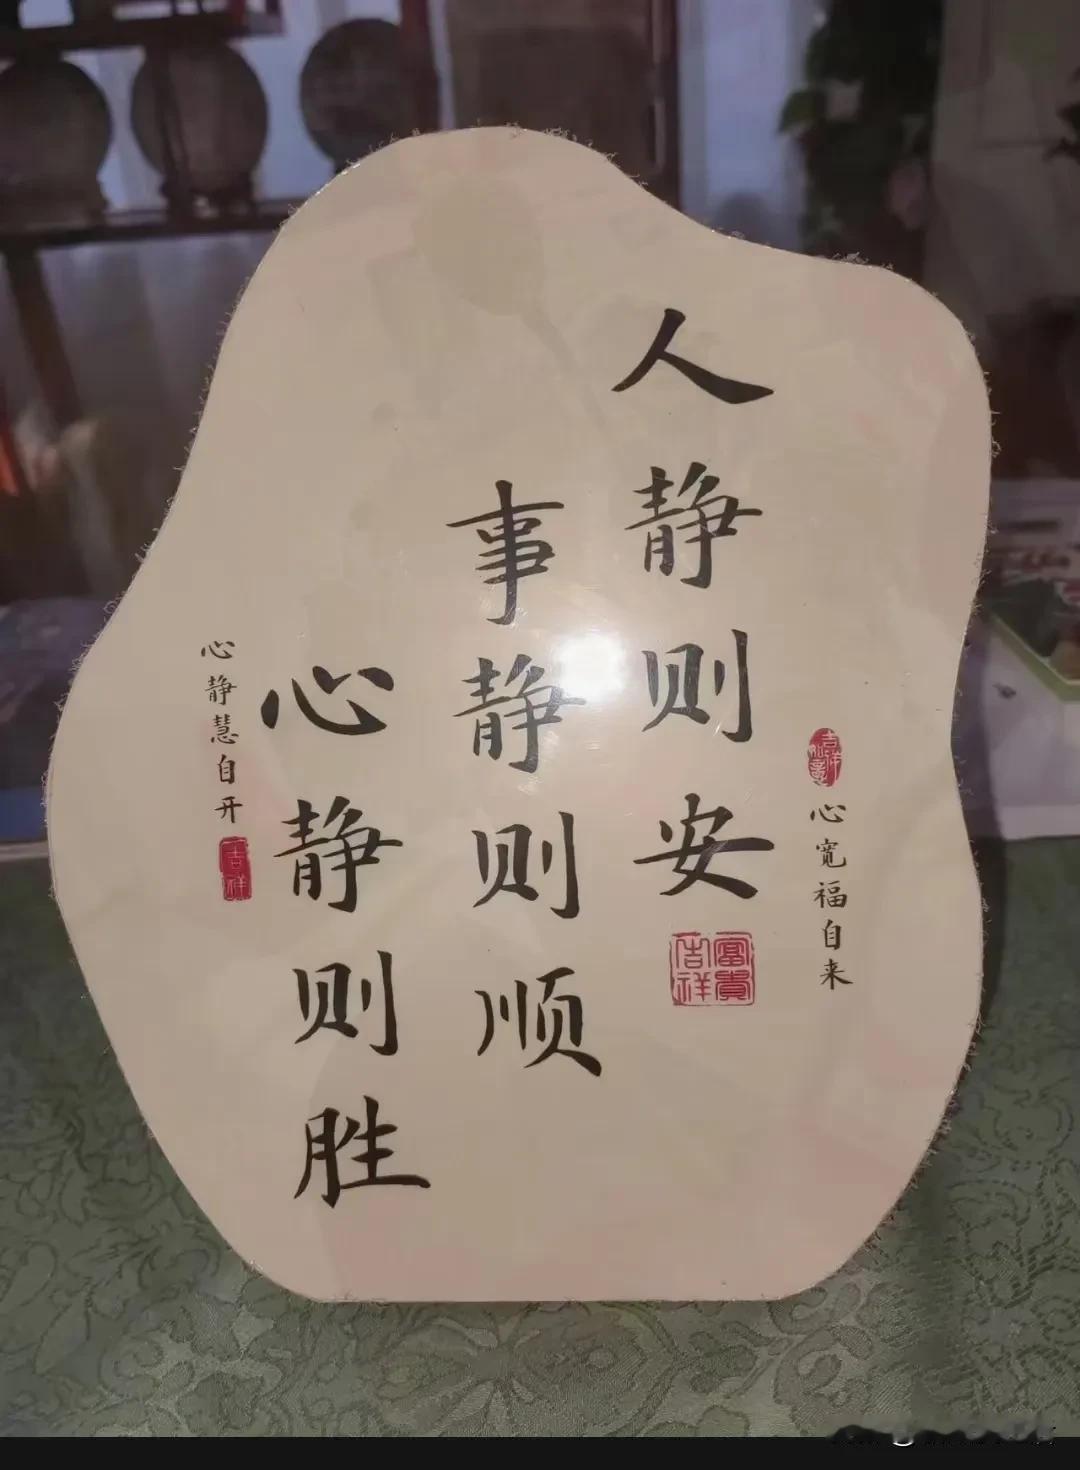 吉祥如意
心宽福自来
人静则安
富贵吉祥
事静则顺
心静则胜
心静慧自开
吉祥